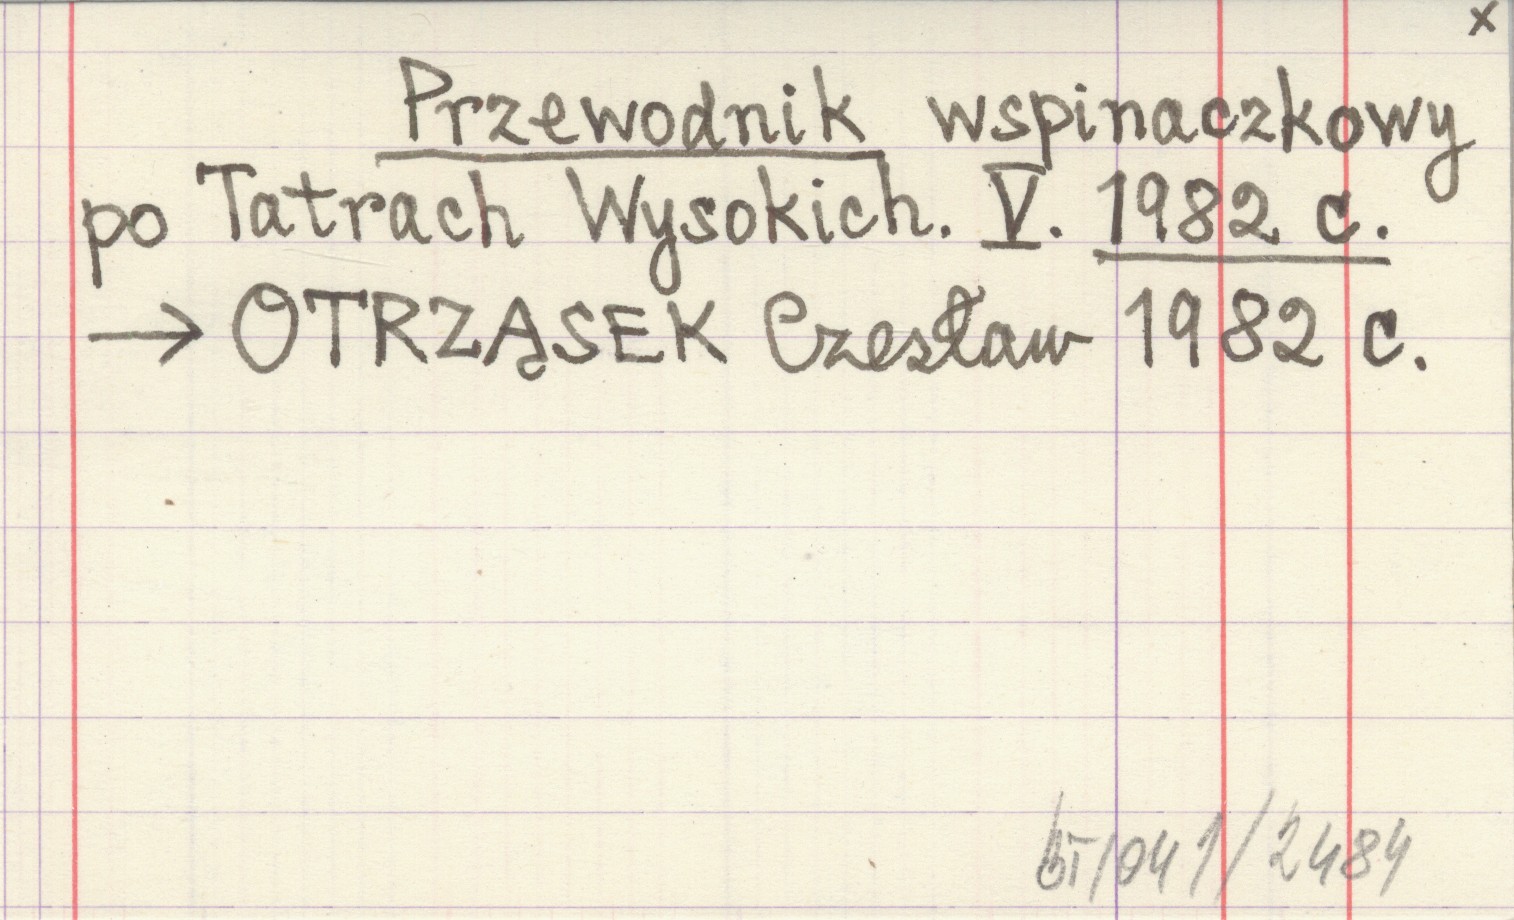 x
Przewodnik wspinaczkowy
po Tatrach Wysokich. V. 1982 c.
→ OTRZĄSEK Czesław 1982 c.
bT/041/2484